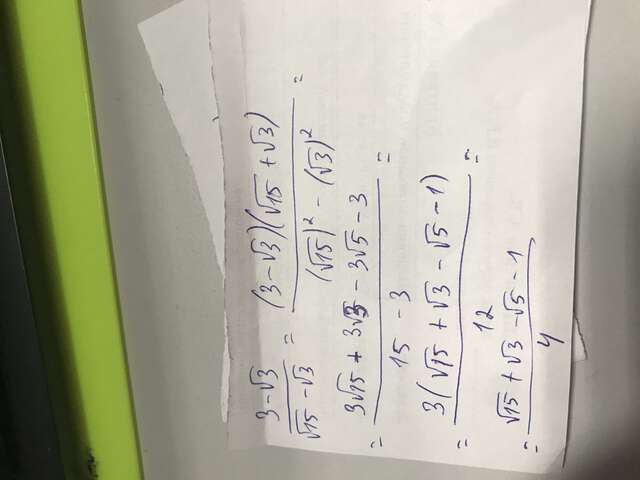 (3-√3)/(√15-√3) = ((3-√3)(√15+√3))/((√15)²-(√3)²) =
= (3√15+3√3-3√5-3)/(15-3) =
= (3(√15+√3-√5-1))/12 =
= (√15+√3-√5-1)/4